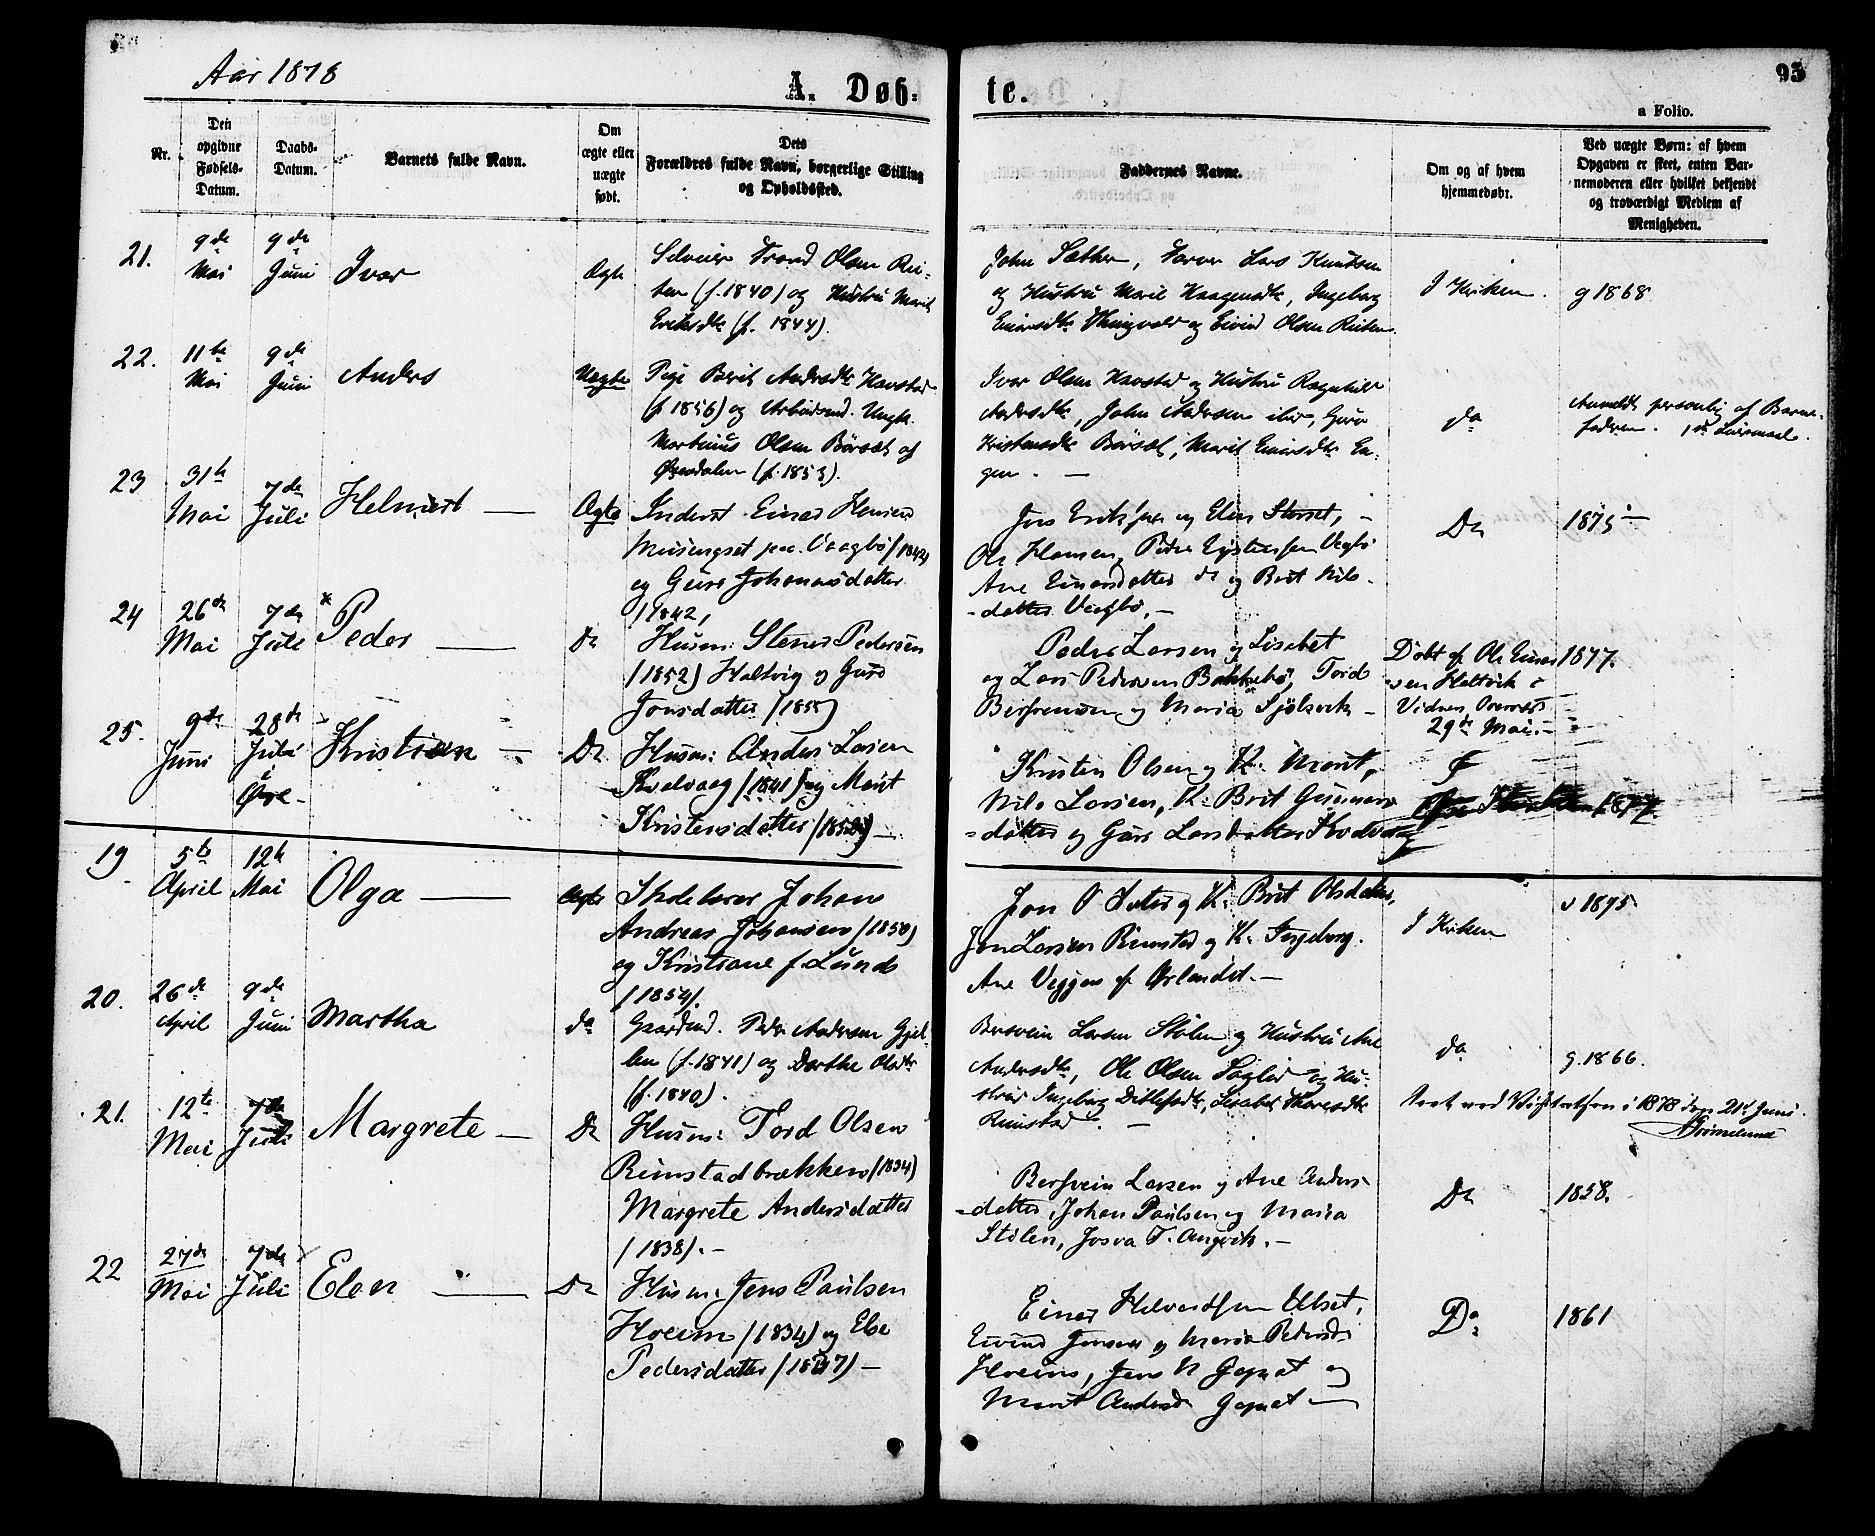 Aar 1878
A. Døb-
te.
95
a Folio.
Nr.
Den
opgivne
Fødsels-
Datum.
Daabs-
Datum.
Barnets fulde Navn.
Om
ægte eller
uægte
født.
Dets
Forældres fulde Navn, borgerlige Stilling
og Opholdssted.
Faddernes Navne.
Om og af hvem
hjemmedøbt.
Ved uægte Børn: af hvem
Opgaven er skeet, enten Bar-
nemoderen eller hvilket bekjendt
og troværdigt Medlem af
Menigheden.
21.
9de
Mai
9de
Juni
Ivar
Ægte
Selveier Trond Olsen Rei-
ten (f. 1840) og Hustru Marit
Eriksdtr (f. 1844).
John Sæther, Farver Lars Knutsen
og Hustru Marit Haagensdtr, Ingeborg
Einarsdtr og Eivind Olsen Reiten.
I Kirken.
g 1868.
22.
11te
Mai
9de
Juni
Anders
Uægte
Pige Berit Andersdtr Havstad
(f 1856) og Arbeidsmd. Ungk.
Martinus Olsen Børset af
Øxendalen (f. 1853).
Iver Olsen Havstad og Hustru Ragnhild
Andersdtr, John Andersen ibid, Guro
Kristensdtr Børset, Marit Einarsdtr En-
gen. —
do
Anmeldt personlig af Barne-
faderen. 1ste Leiermaal.
23
31te
Mai
7de
Juli
Helmert —
Ægte
Inderst Einar Hansen
og Guro Johannesdatter
/1842/
og Elen Storset, —
Ole Hansen, Peder
Ane Einarsdatter do og Brit Nils-
-datter Vaagbø, —
Do
1875 —
24
26de
Mai
7de
Juli
* Peder —
Do
Husm: Stener Pedersen
/1852/ Heltvig og Guro
Jonsdatter /1855/
Peder Larsen og Lisabet
og Lars Pedersen Bakkebø, Tord
og Maria —
Døbt af Ole Einar-
sen Heltvik i
Vidners Overvær
29de Mai. —
1877.
25.
9de
Juni
28de
Juli
i
Øre —
Kristian —
Do
Husm: Anders Larsen
Kvalvaag /1841/ og Marit
Kristensdatter /1852/ —
Kristen Olsen og K. Marit,
Nils Larsen, K. Brit Gunners-
-datter og Guro Larsdatter Kvalvaag
1877.
19
5te
April
12te
Mai
Olga —
Ægte
Skolelærer Johan
Andreas Johansen /1850/
og Kristiane f. Lund
/1854/.
Jon O og K. Brit Olsdatter,
Jon Larsen Rimstad og K. Ingeborg.
Ane Veggen af Ørlandet. —
I Kirken
v 1875
20.
26de
April
9de
Juni
Martha
do
Gaardmd. Peder Andersen Gjel-
len (f. 1841) og Dorthe Olsdtr
(f. 1840).
Bersvein Larsen Stølen og Hustru Ane
Andersdtr, Ole Olsen og Hu-
stru Ingeborg Ditlefsdtr, Lisabet
Rimstad. —
do
g. 1866.
i 1878 den 21de Juni.
21.
12te
Mai
7de
Juli
Margrete —
Do
Husm: Tord Olsen
Rimstadbrækken /1834/
Margrete Andersdatter
/1838/. —
Bersvein Larsen og Ane Anders-
-datter, Johan Paulsen og Maria
Stölen, Josva T. Angvik. —
Do
1858.
22
27de
Mai
7de
Juli
Elen —
Do
Husm: Jens Paulsen
Hoeim /1834/ og Else
Pedersdatter /1837/ —
Einar
Eivind Jensen og Maria Pedersdr
Hoeim, Jens N Gopnet og
Marit Andersdr Gopnet —
Do
1861